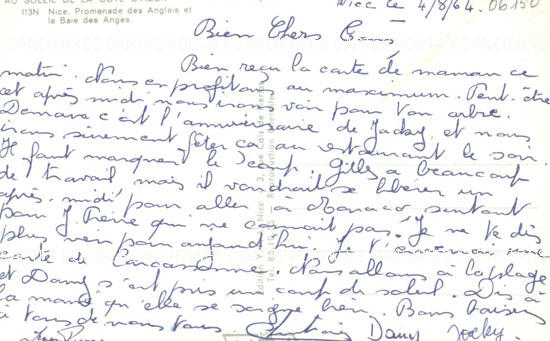 AU SOLEIL DE LA CÔTE D'AZUR
113N Nice, Promenade des Anglais et
la Baie des Anges.
Nice le 4/8/64. 06150
Bien Chers
Bien reçu la carte de maman ce
matin. Nous en profitons au maximum. Peut-être
cet après midi nous irons voir pour ton arbre.
Demain c'est l'anniversaire de Jacky, et nous
irons sûrement fêter ça au restaurant le soir.
Il faut marquer le coup. Gilles a beaucoup
de travail mais il voudrait se libérer un
après-midi pour aller à Monaco surtout
pour J. Pierre qui ne connait pas. Je ne te dis
plus rien pour aujourd'hui. Je t'
carte de Carcassonne. Nous allons à la plage
et Dany s'est pris un coup de soleil. Dis à
la mamé qu'elle se soigne bien. Bons baisers
à tous de nous tous
Dany Jacky.